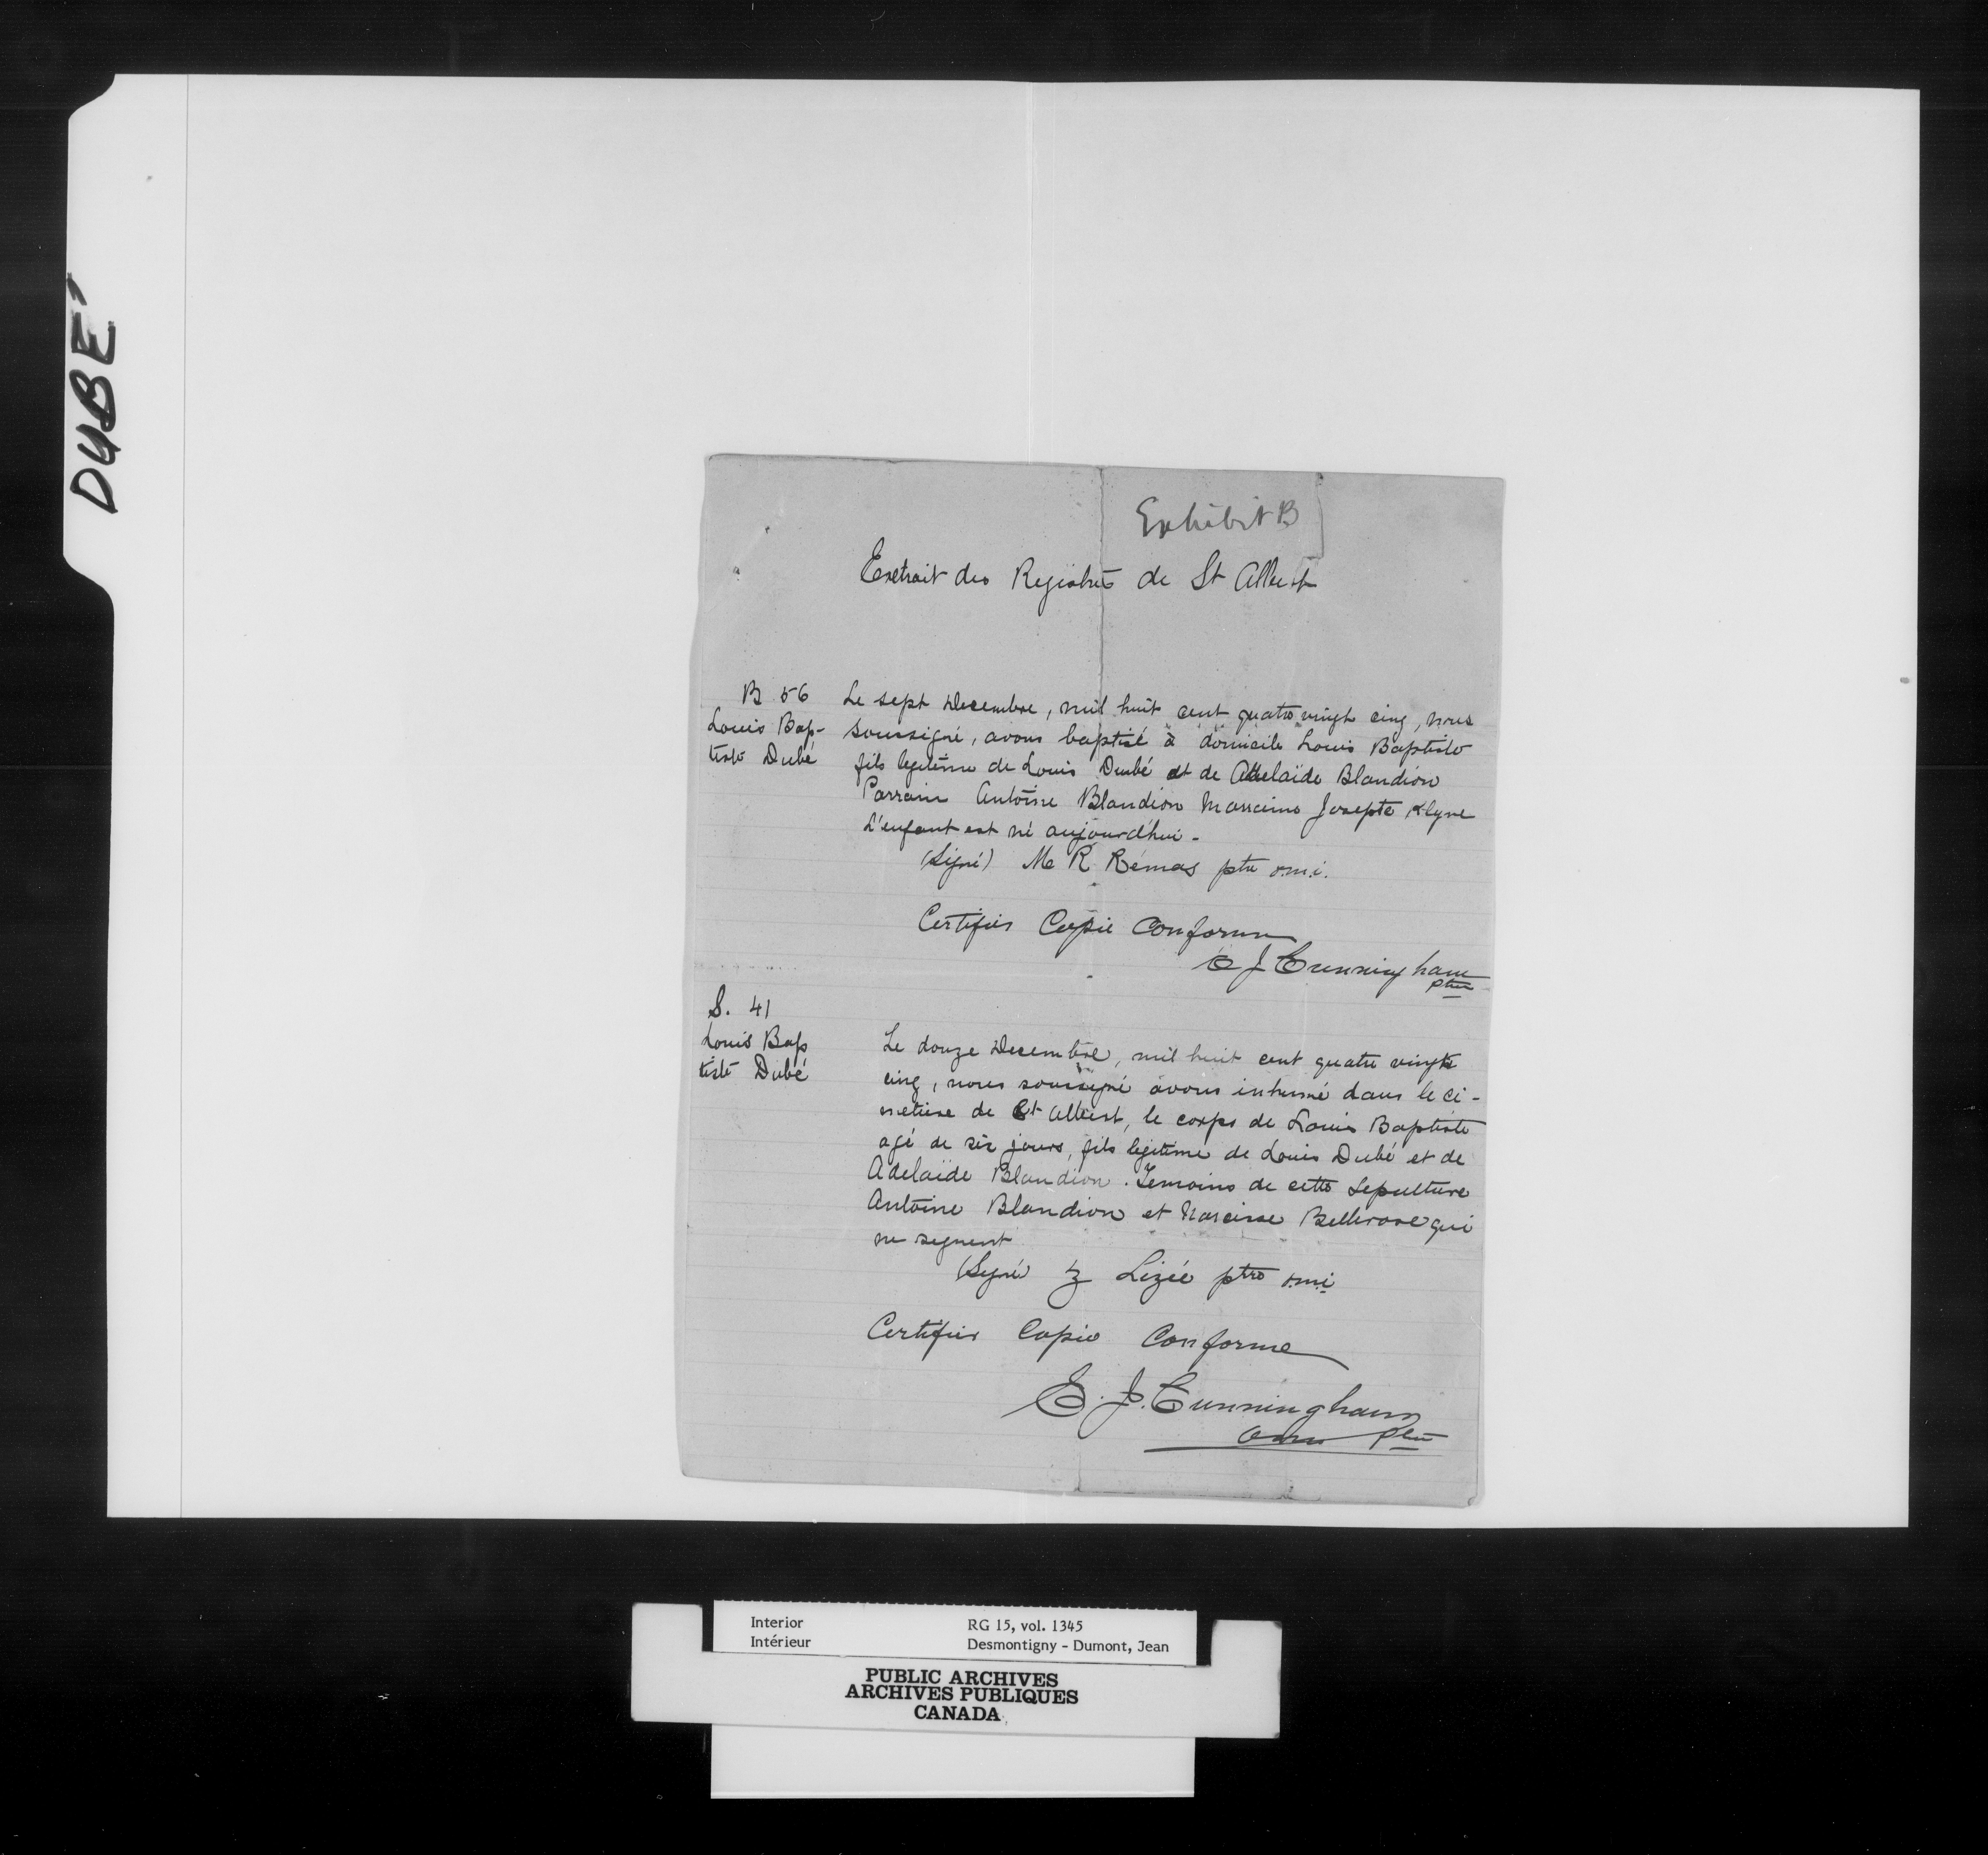 DUBÉ
Exhibit B
Extrait des Registres de St Albert
B 56
Louis Bap-
tiste Dubé
Le sept Decembre, mil huit cent quatre vingt cinq, nous
soussigné, avons baptisé à domicile Louis Baptiste
fils legitime de Louis Dubé et de Adelaïde Blandion
Parrain Antoine Blandion Marraine Josepte Klyne
L'enfant est né aujourd'hui -
(Signé) M R Rémas ptre o.m.i.
Certifiée Copie Conforme
E J Cunningham
ptre
S. 41
Louis Bap
tiste Dubé
Le douze Decembre, mil huit cent quatre vingt
cinq, nous soussigné avons inhumé dans le ci-
metiere de St Albert, le corps de Louis Baptiste
agé de six jours, fils legitime de Louis Dubé et de
Adelaïde Blandion. Temoins de cette Sepulture
Antoine Blandion et Narcisse Bellerose qui
ne signent
(Signé) Z Lizée ptre o.m.i
Certifiée Copie Conforme
E. J. Cunningham
omi ptre
Interior RG 15, vol. 1345
Intérieur Desmontigny - Dumont, Jean
PUBLIC ARCHIVES
ARCHIVES PUBLIQUES
CANADA